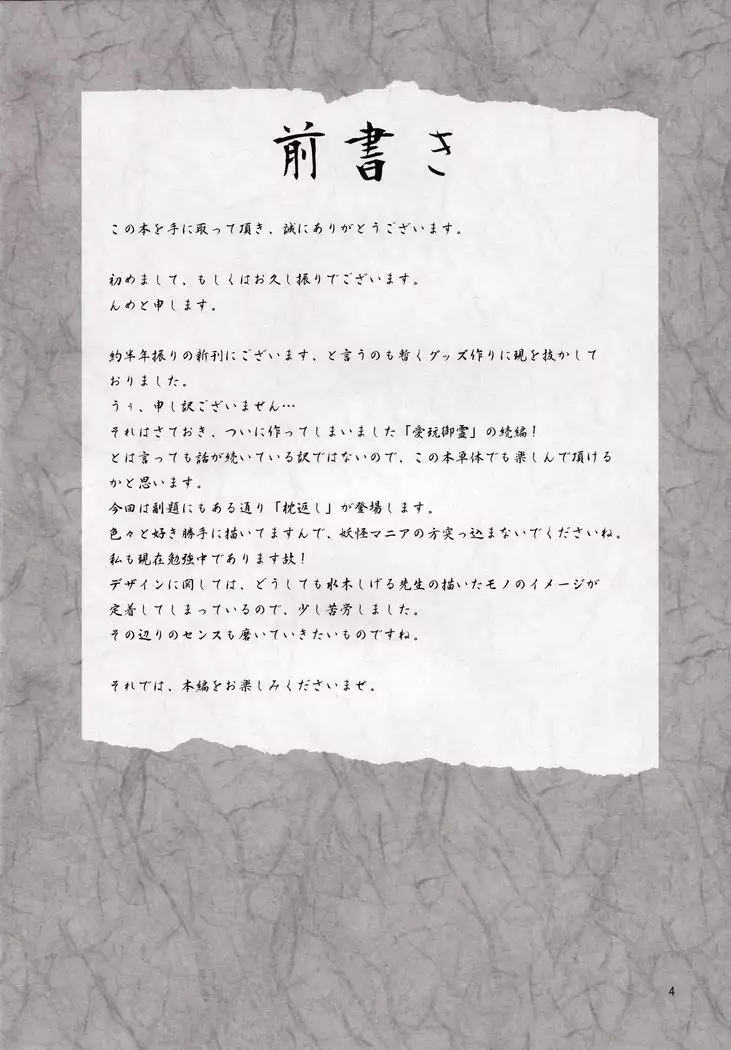 前書き
この本を手に取って頂き、誠にありがとうございます。
初めまして、もしくはお久し振りでございます。
んめと申します。
約半年振りの新刊にございます、と言うのも暫くグッズ作りに現を抜かして
おりました。
うぅ、申し訳ございません…
それはさておき、ついに作ってしまいました「愛玩御霊」の続編！
とは言っても話が続いている訳ではないので、この本単体でも楽しんで頂ける
かと思います。
今回は副題にもある通り「枕返し」が登場します。
色々と好き勝手に描いてますんで、妖怪マニアの方突っ込まないでくださいね。
私も現在勉強中であります故！
デザインに関しては、どうしても水木しげる先生の描いたモノのイメージが
定着してしまっているので、少し苦労しました。
その辺りのセンスも磨いていきたいものですね。
それでは、本編をお楽しみくださいませ。
4